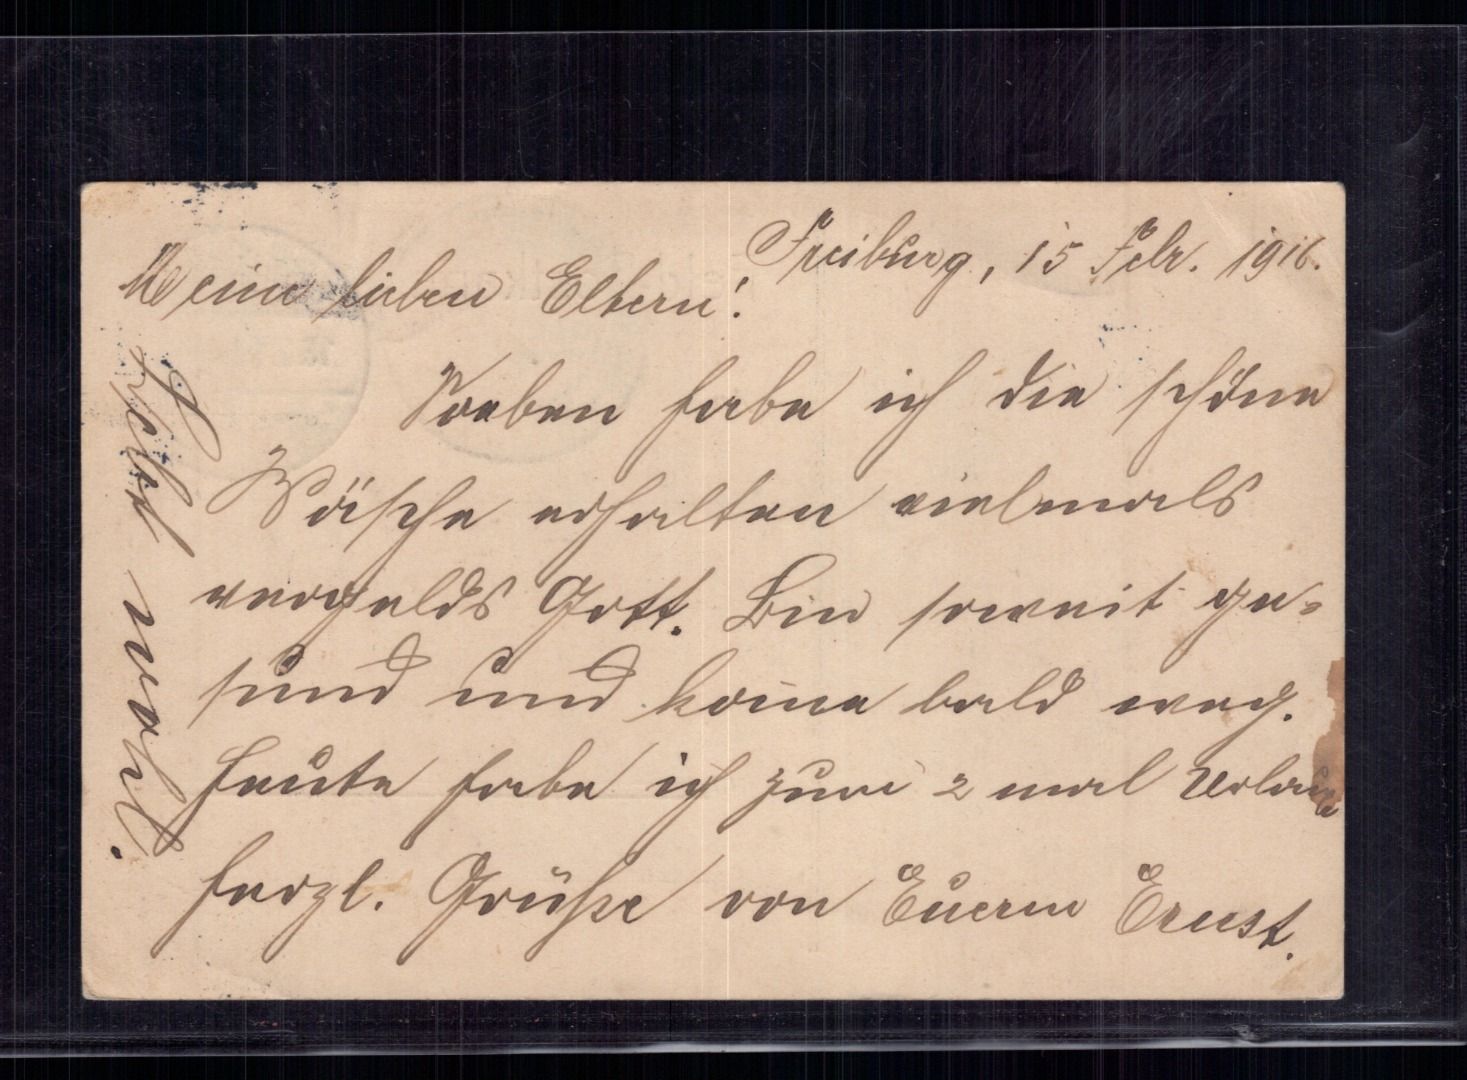 Freiburg, 15 Febr. 1916.
Meine lieben Eltern!
Soeben habe ich die schöne
Wäsche erhalten vielmals
vergelds Gott. Bin soweit ge=
sund und kome bald weg.
Heute habe ich zum 2 mal Urlaub
herzl. Grüße von Euerm Ernst.
Lebt wohl.